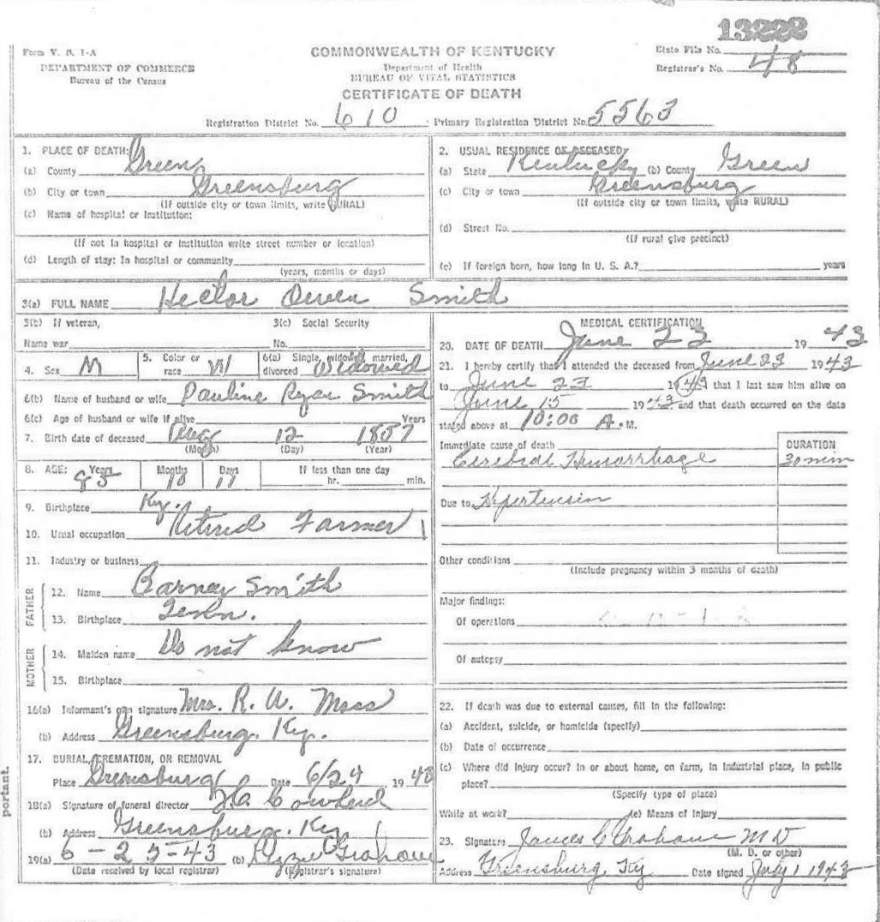 13222
Form V. S. 1-A
DEPARTMENT OF COMMERCE
Bureau of the Census
COMMONWEALTH OF KENTUCKY
Department of Health
BUREAU OF VITAL STATISTICS
CERTIFICATE OF DEATH
State File No.
Registrar's No. 48
Registration District No. 610 Primary Registration District No. 5563
1. PLACE OF DEATH:
(a) County Green
(b) City or town Greensburg
(If outside city or town limits, write RURAL)
(c) Name of hospital or institution:
(If not in hospital or institution write street number or location)
(d) Length of stay: In hospital or community
(years, months or days)
2. USUAL RESIDENCE OF DECEASED:
(a) State Kentucky (b) County Green
(c) City or town Greensburg
(If outside city or town limits, write RURAL)
(d) Street No.
(If rural give precinct)
(e) If foreign born, how long in U. S. A.? years
3(a) FULL NAME Hector Owen Smith
3(b) If veteran,
Name war
3(c) Social Security
No.
4. Sex M
5. Color or race W
6(a) Single, widowed, married, divorced Widowed
6(b) Name of husband or wife Pauline Ryan Smith
6(c) Age of husband or wife if alive Years
7. Birth date of deceased Aug 12 1857
(Month) (Day) (Year)
8. AGE: Years 85 Months 10 Days 11 If less than one day
hr. min.
9. Birthplace Ky.
10. Usual occupation Retired Farmer
11. Industry or business
FATHER
12. Name Barney Smith
13. Birthplace Tenn.
MOTHER
14. Maiden name Do not know
15. Birthplace
16(a) Informant's own signature Mrs. R. W. Moss
(b) Address Greensburg, Ky.
17. BURIAL, CREMATION, OR REMOVAL
Place Greensburg Date 6/24 1943
18(a) Signature of funeral director Cowherd
(b) Address Greensburg, Ky
19(a) 6-25-43 (b) Graham
(Date received by local registrar) (Registrar's signature)
MEDICAL CERTIFICATION
20. DATE OF DEATH June 23 1943
21. I hereby certify that I attended the deceased from June 23 1943
to June 23 1943 that I last saw him alive on
June 15 1943 and that death occurred on the date
stated above at 10:00 A. M.
Immediate cause of death
Cerebral Hemorrhage
DURATION
30 min
Due to Hypertension
Other conditions
(Include pregnancy within 3 months of death)
Major findings:
Of operations
Of autopsy
22. If death was due to external causes, fill in the following:
(a) Accident, suicide, or homicide (specify)
(b) Date of occurrence
(c) Where did injury occur? In or about home, on farm, in industrial place, in public
place?
(Specify type of place)
While at work? (e) Means of injury
23. Signature James C Graham M D
(M. D. or other)
Address Greensburg, Ky Date signed July 1 1943
portant.